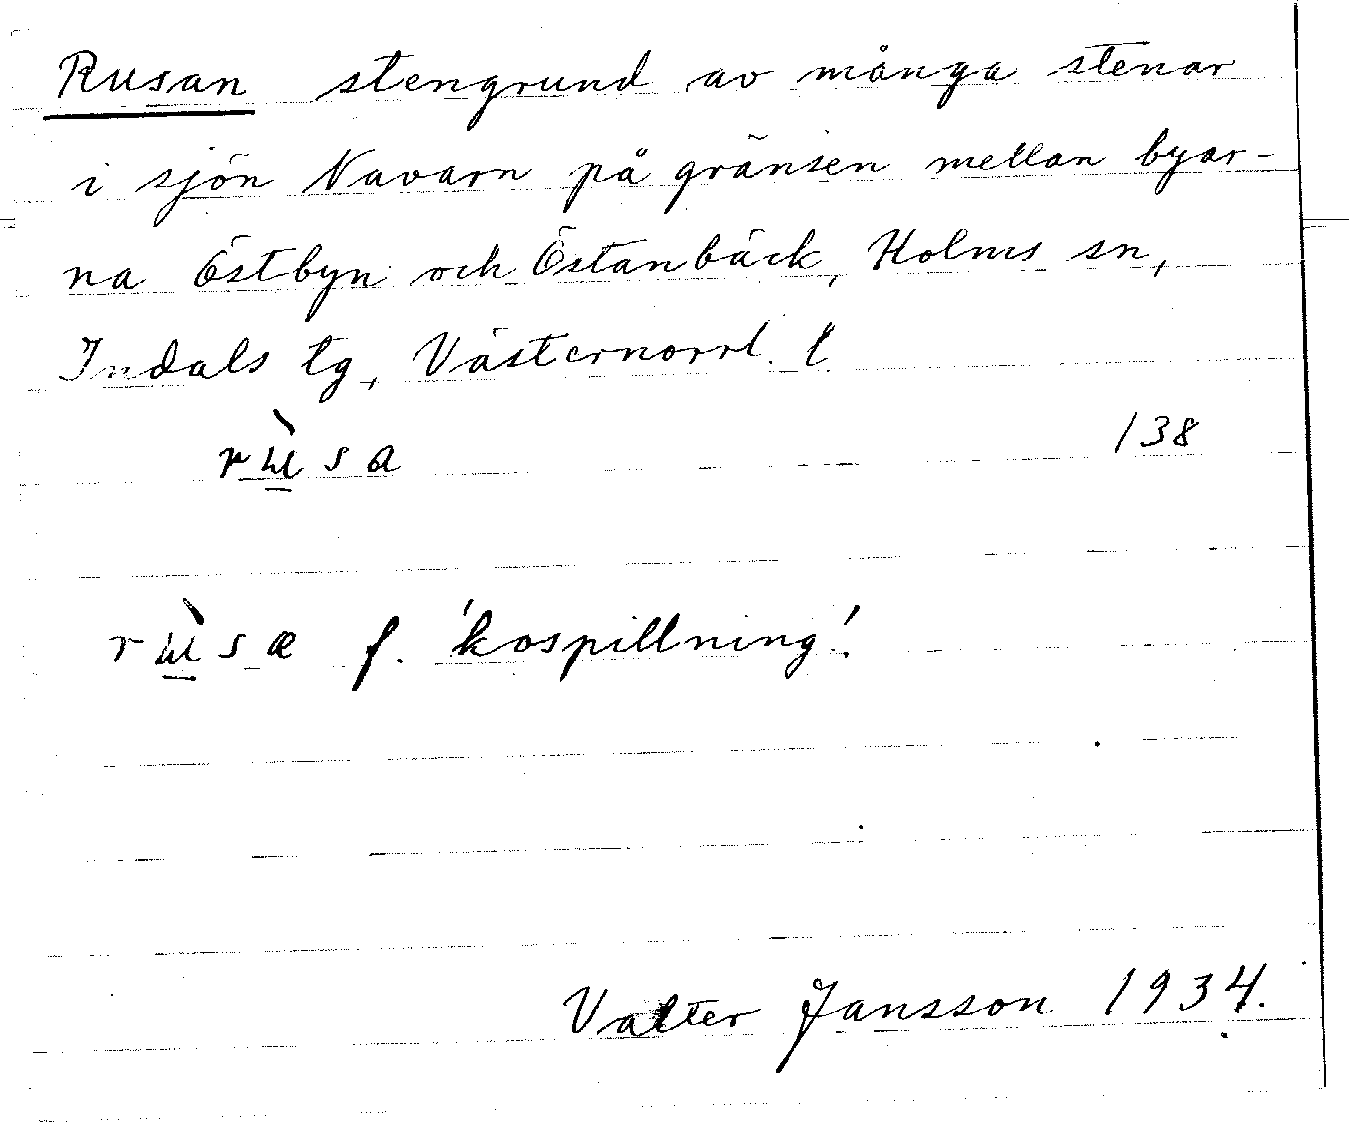 Rusan stengrund av många stenar
i sjön Navarn på gränsen mellan byar-
na Östbyn och Östanbäck, Holms sn,
Indals tg, Västernorrl. l.
rɯ̀sa 138
rɯ̀sæ f. 'kospillning'.
Valter Jansson 1934.